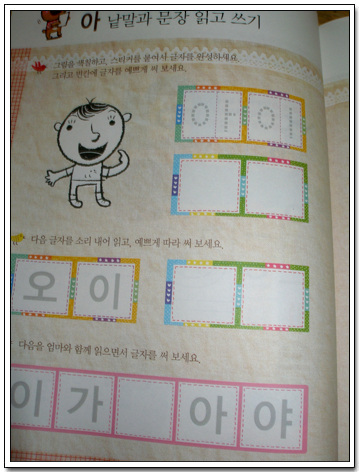 아 낱말과 문장 읽고 쓰기
그림을 색칠하고, 스티커를 붙여서 글자를 완성하세요.
그리고 빈칸에 글자를 예쁘게 써 보세요.
아 이
다음 글자를 소리 내어 읽고, 예쁘게 따라 써 보세요.
오 이
다음을 엄마와 함께 읽으면서 글자를 써 보세요.
이 가 아 야